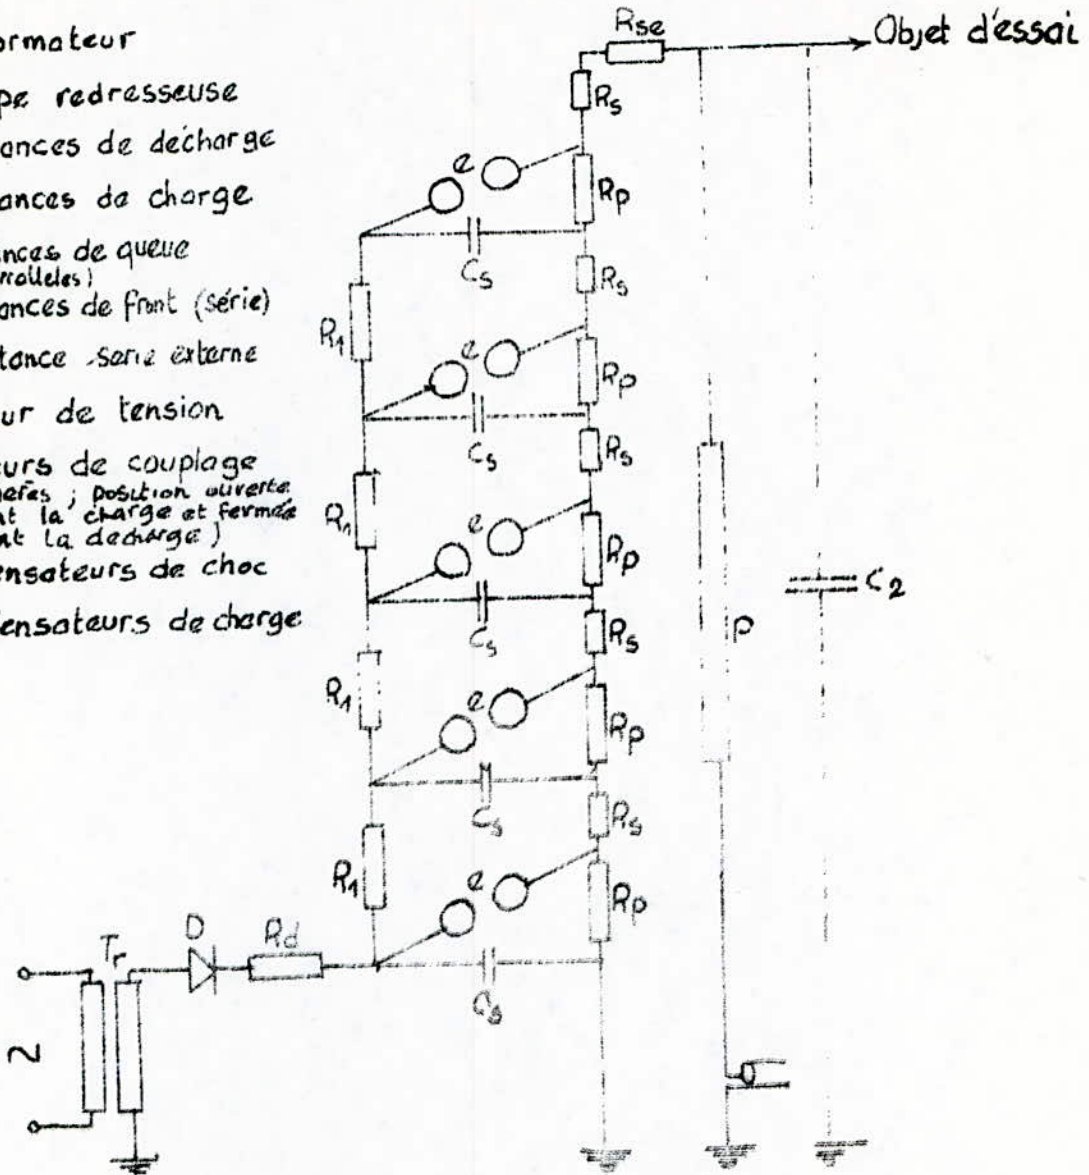 ormateur
pe redresseuse
ances de décharge
ances de charge
nces de queue
rralleles)
ances de front (série)
tance serie externe
ur de tension
eurs de couplage
heres ; position ouverte
nt la charge et fermée
nt la decharge)
ensateurs de choc
ensateurs de charge
Rse
Objet d'essai
Rs
e
Rp
Cs
Rs
R1
e
Rp
Cs
Rs
R1
e
Rp
Cs
Rs
R1
e
Rp
Cs
Rs
R1
e
Rp
Cs
P
C2
Tr
D
Rd